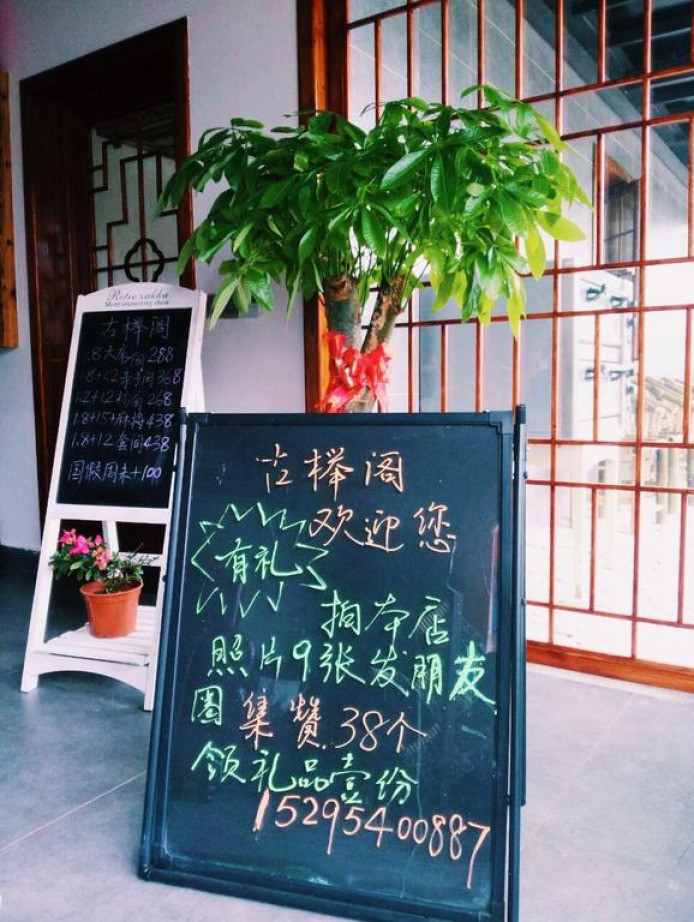 Retro zakka
古榉阁
1.8大床房288
1.8+1.2亲子间368
1.2+1.2标间268
1.8+1.5+麻将438
1.8+1.2套间438
国假周末+100
古榉阁
欢迎您
有礼
拍本店
照片9张发朋友
圈集赞38个
领礼品壹份
15295400887